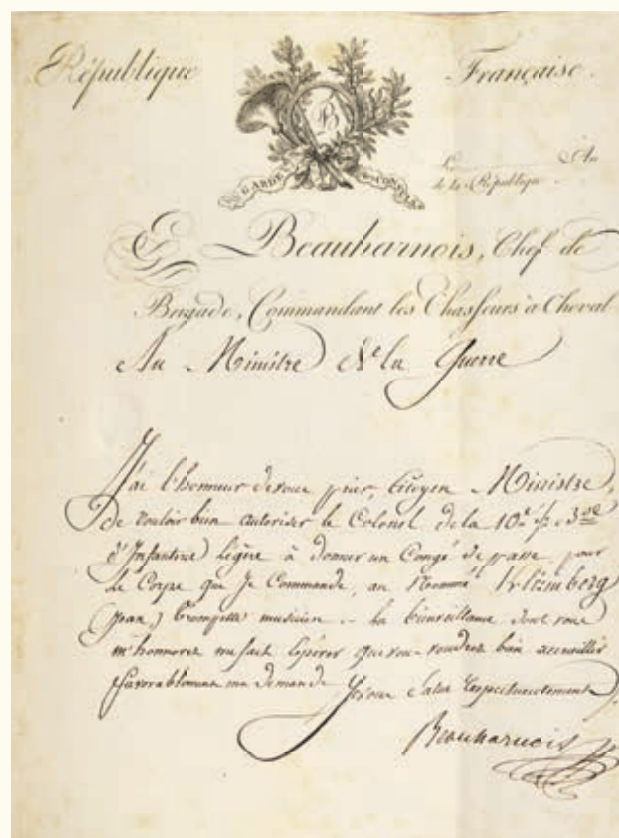 République Française.
B
GARDE DES CONSULS
Le An
de la République.
E Beauharnois, Chef de
Brigade, Commandant les Chasseurs à Cheval
Au Ministre de la Guerre
J'ai l'honneur de vous prier, Citoyen Ministre,
de vouloir bien autoriser le Colonel de la 10e
d'Infanterie légère à donner un Congé de passe pour
le Corps que Je Commande, au Nommé Klimberg
(Jean) trompette musicien la bienveillance dont vous
m'honorez me fait Espérer que vous voudrez bien accueillir
favorablement ma demande Je vous Salue Respectueusement
Beauharnois